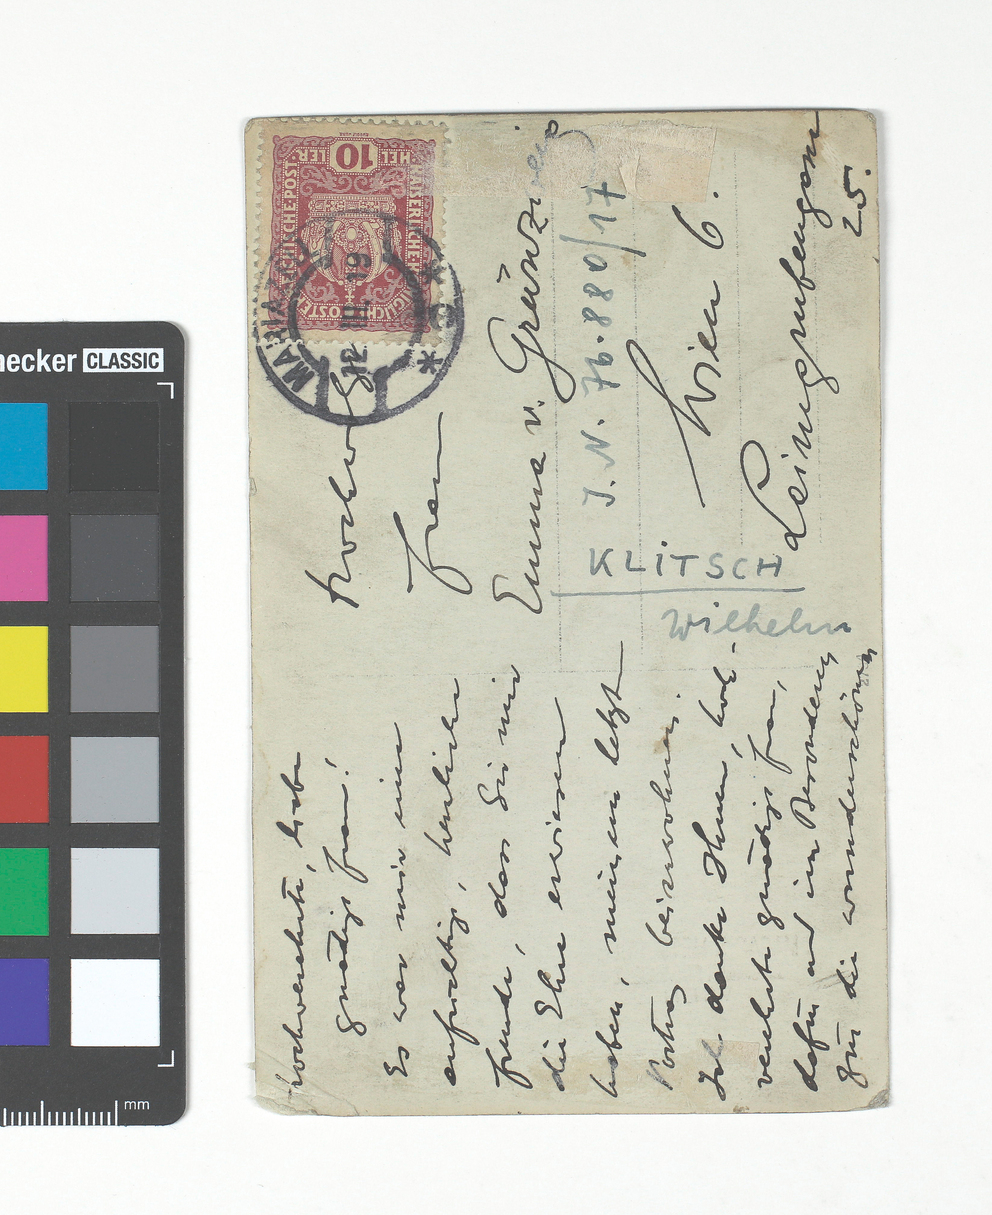 necker CLASSIC
mm
KAISERLICHE KÖNIGLICHE ÖSTERREICHISCHE POST
10
HELLER
MARIA
12.III.19
Hochverehrte, liebe
gnädige Frau!
Es war mir eine
aufrichtige, herzliche
Freude, dass Sie mir
die Ehre erwiesen
haben, meinem letzten
Vortrag beizuwohnen.
Ich danke Ihnen, hoch-
verehrte gnädige Frau,
dafür und im Besonderen
für die wunderschönen
Hochwolg.
Frau
Emma v. Grünzweig
J.N. 76.880/17
Wien 6.
Leimgrubengasse
25.
KLITSCH
Wilhelm